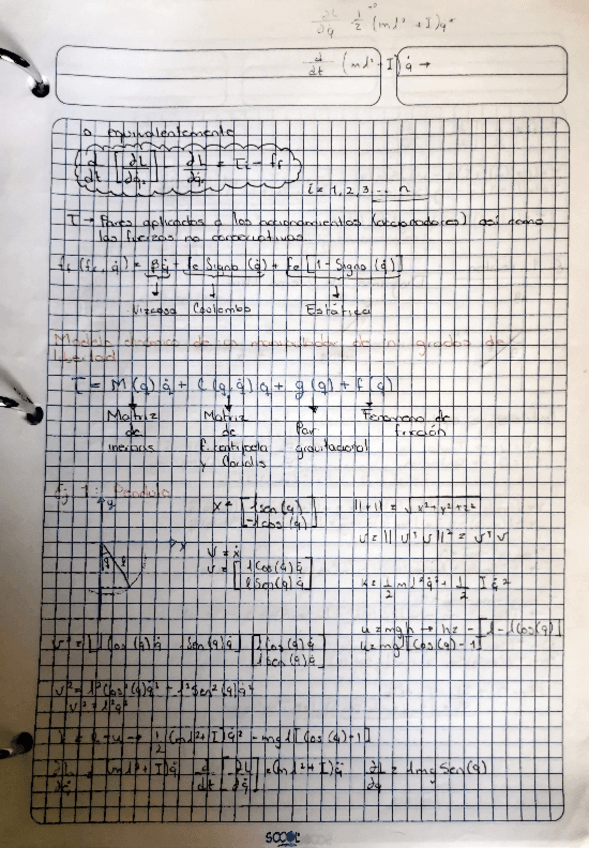 ∂L/∂q̇ ½ (ml² + I) q̇²
d/dt (ml² + I) q̇ →
o equivalentemente
d/dt [∂L/∂q̇] - ∂L/∂q = τi - fi
i = 1, 2, 3 ... n
τ → Pares aplicados a los accionamientos (accionadores) así como
las fuerzas no
ff (fe, q̇) = βq̇ + fc Signo (q̇) + fe [1 - Signo (q̇)]
Viscosa Coulombs Estática
Modelo dinámico de un manipulador de "n" grados de
libertad
τ = M(q) q̈ + C(q, q̇) q + g(q) + f(q̇)
Matriz de inercias
Matriz de F. centrípeta y Coriolis
Par gravitacional
Fenómeno de fricción
Ej 1: Péndulo
y
x
q
l
x = [l sen(q)
-l cos(q)]
||r|| = √x² + y² + z²
v = ẋ
v = [l Cos(q) q̇
l Sen(q) q̇]
v = || vᵀ v ||² = vᵀ v
k = ½ ml² q̇² + ½ I q̇²
u = mgh → h = -[l - l Cos(q)]
u = mgl [Cos(q) - 1]
v² = [l Cos(q) q̇ l Sen(q) q̇] [l Cos(q) q̇
l Sen(q) q̇]
v² = l² Cos²(q) q̇² + l² Sen²(q) q̇²
v² = l² q̇²
L = k - u → ½ (ml² + I) q̇² - mgl [Cos(q) - 1]
∂L/∂q̇ = (ml² + I) q̇ d/dt [∂L/∂q̇] = (ml² + I) q̈ ∂L/∂q = lmg Sen(q)